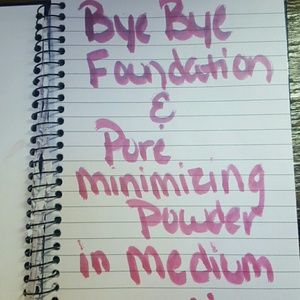 Bye Bye
Foundation
&
Pore
minimizing
Powder
in Medium